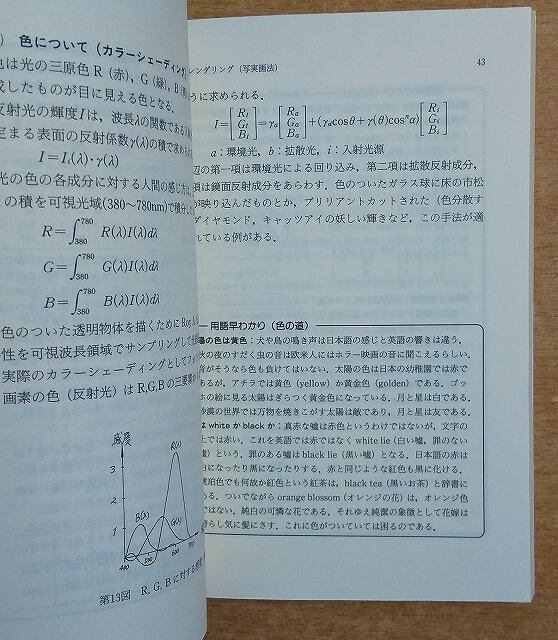 色について（カラーシェーディング
色は光の三原色R（赤），G（緑），B（
成したものが目に見える色となる．
反射光の輝度Iは，波長λの関数である
定まる表面の反射係数γ(λ)の積で求め
I=Iᵢ(λ)·γ(λ)
光の色の各成分に対する人間の感じ方は
の積を可視光域(380～780nm)で積分し
R=∫₃₈₀⁷⁸⁰ R(λ)I(λ)dλ
G=∫₃₈₀⁷⁸⁰ G(λ)I(λ)dλ
B=∫₃₈₀⁷⁸⁰ B(λ)I(λ)dλ
色のついた透明物体を描くために
性を可視波長領域でサンプリングして
実際のカラーシェーディングとして
画素の色（反射光）はR,G,Bの三要
感度
3
2
1
R(λ)
B(λ)
G(λ)
400
500
600
700
第13図 R, G, Bに対する
ンダリング（写実画法）
43
うに求められる．
I=[Rᵢ Gᵢ Bᵢ]=γₐ[Rₐ Gₐ Bₐ]+(γₐcosθ+γ(θ)cosⁿα)[Rᵢ Gᵢ Bᵢ]
a：環境光，b：拡散光，i：入射光源
辺の第一項は環境光による回り込み，第二項は拡散反射成分，
項は鏡面反射成分をあらわす．色のついたガラス球に床の市松
が映り込んだものとか，ブリリアントカットされた（色分散す
ダイヤモンド，キャッツアイの妖しい輝きなど，この手法が適
れている例がある．
用語早わかり（色の道）
陽の色は黄色：犬や鳥の鳴き声は日本語の感じと英語の響きは違う．
火の夜のすだく虫の音は欧米人にはホラー映画の音に聞こえるらしい．
音がそうなら色も負けてはいない．太陽の色は日本の幼稚園では赤で
であるが，アチラでは黄色（yellow）か黄金色（golden）である．ゴッ
ホの絵に見る太陽はぎらつく黄金色になっている．月と星は白である．
沙漠の世界では万物を焼きこがす太陽は敵であり，月と星は友である．
はwhiteかblackか：真赤な嘘は赤色というわけではないが，文字の
上では赤い．これを英語では赤ではなくwhite lie（白い嘘，罪のない
嘘）という．罪のある嘘はblack lie（黒い嘘）となる．日本語の赤は
白になったり黒になったりする．赤と同じような紅色も黒に化ける．
琥珀色でも何故か紅色という紅茶は，black tea（黒いお茶）と辞書に
ある．ついでながらorange blossom（オレンジの花）は，オレンジ色
ではない．純白の可憐な花である．それゆえ純潔の象徴として花嫁は
らし気に髪にさす．これに色がついていては困るのである．